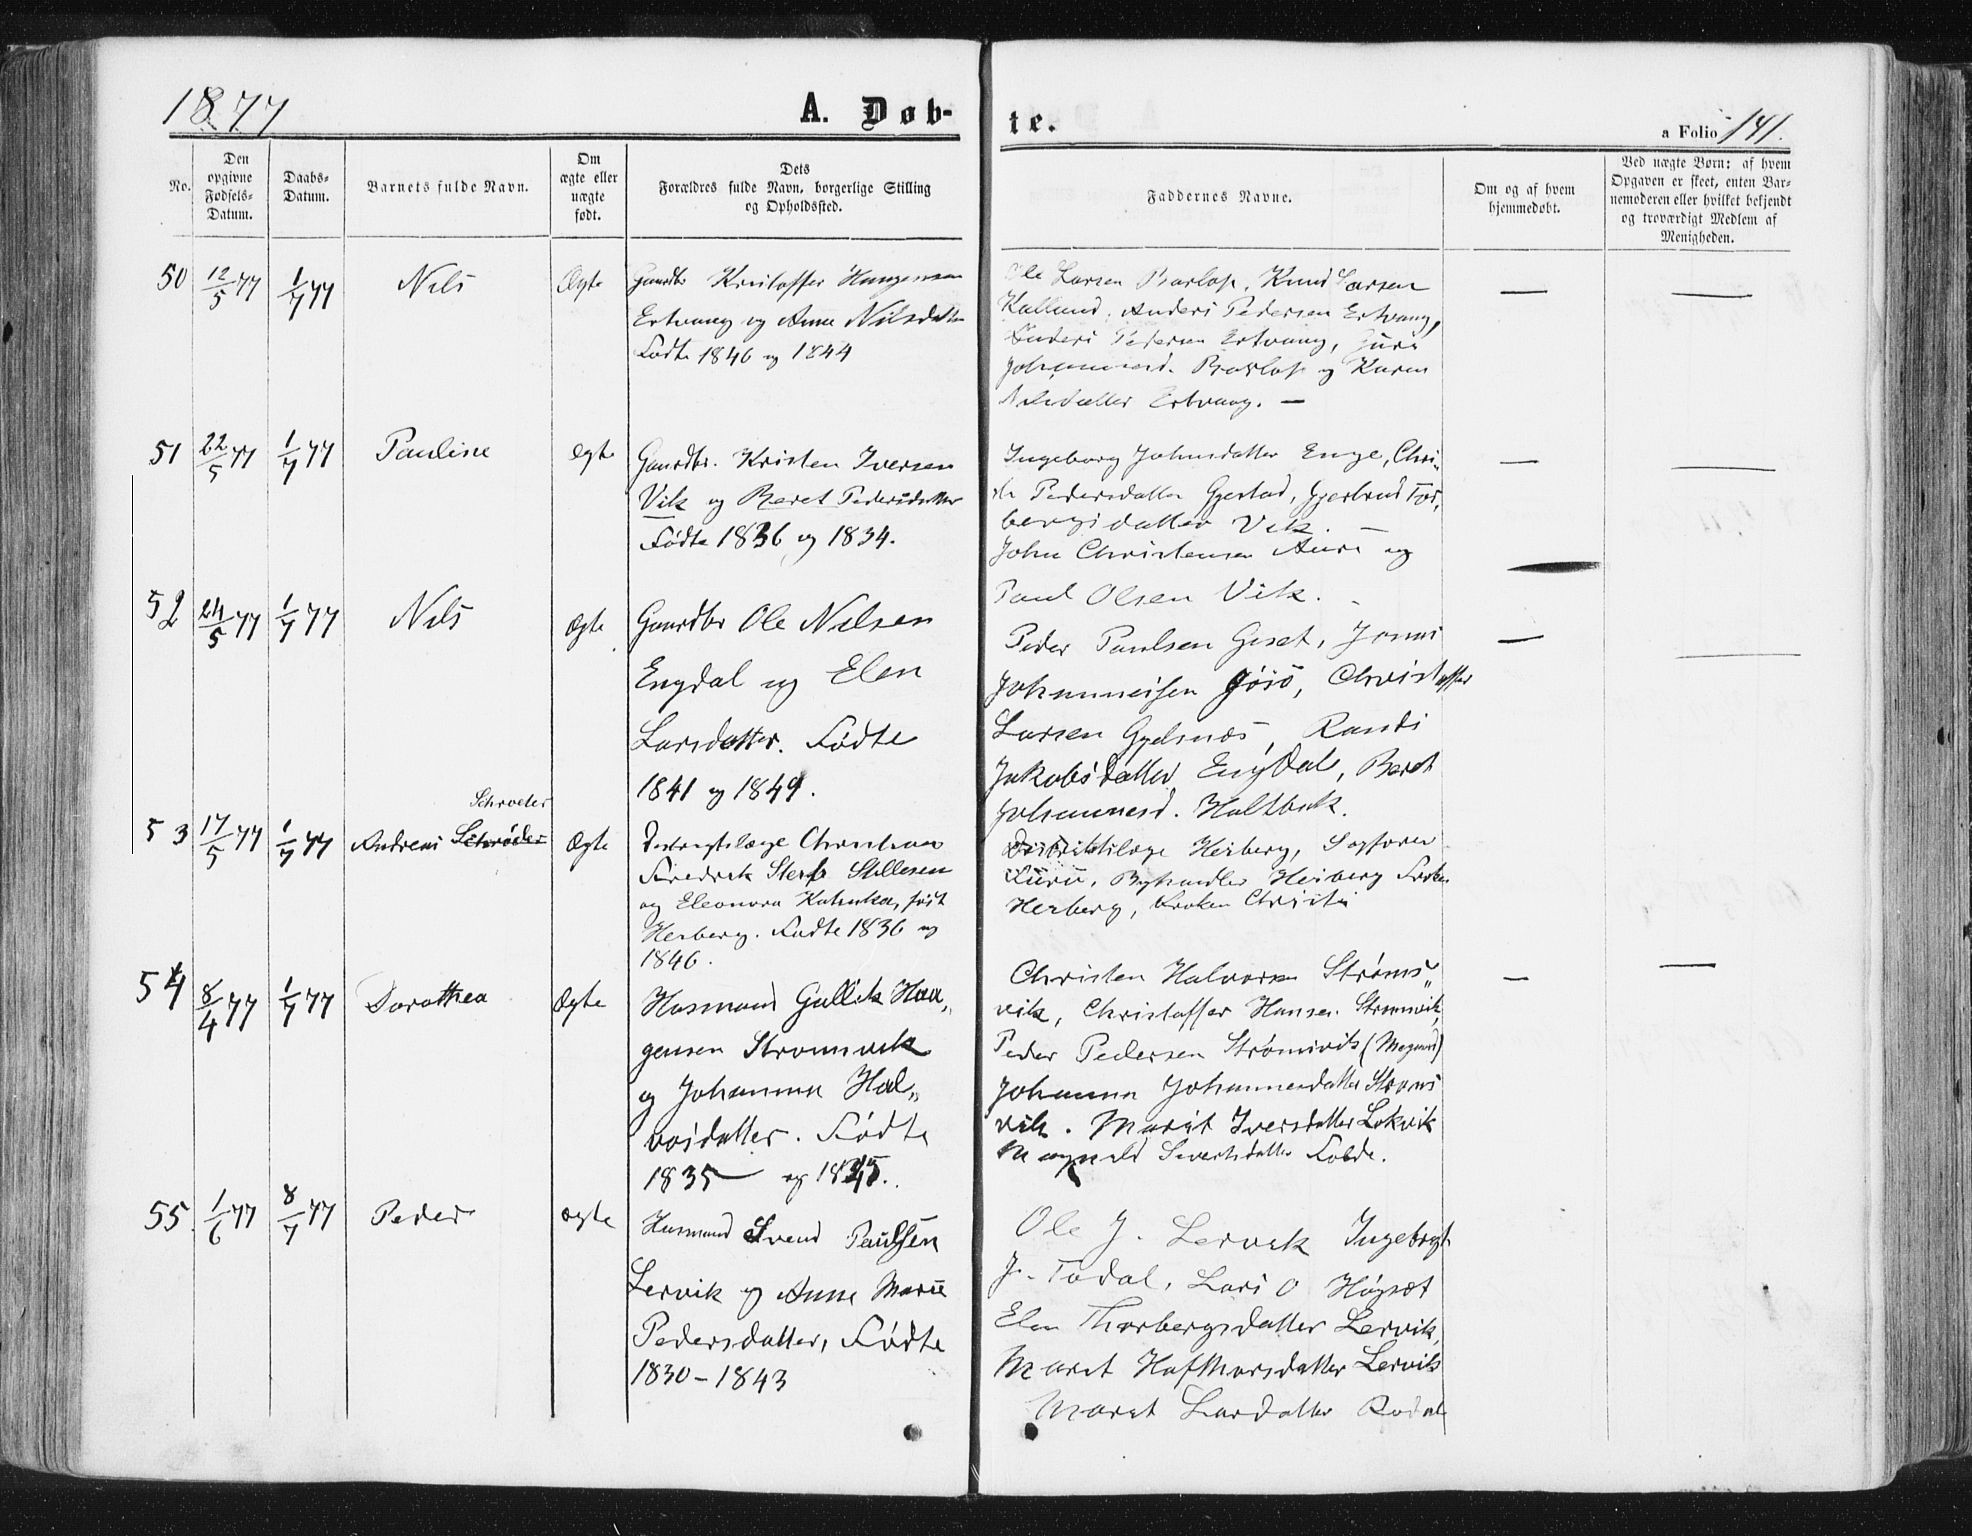 1877
A. Døb-
te.
a Folio 141.
No.
Den
opgivne
Fødsels-
Datum.
Daabs-
Datum.
Barnets fulde Navn.
Om
ægte eller
uægte
født.
Dets
Forældres fulde Navn, borgerlige Stilling
og Opholdssted.
Faddernes Navne.
Om og af hvem
hjemmedøbt.
Ved uægte Børn: af hvem
Opgaven er skeet, enten Bar-
nemoderen eller hvilket bekjendt
og troværdigt Medlem af
Menigheden.
50 12/5 77 1/7 77 Nils Ægte
Gaardbr Kristoffer Haagensen
Ertvaag og Anne Nilsdatter
Fødte 1846 og 1844
Ole Larsen Knud Larsen
Kalland, Anders Pedersen Ertvaag,
Anders Pedersen Ertvaag, Guri
Johannesd. og Karen
Nilsdatter Ertvaag. —
51 22/5 77 1/7 77 Pauline Ægte
Gaardbr. Kristen Iversen
Vik og Beret Pedersdatter
Fødte 1836 og 1834.
Ingeborg Johnsdatter Enge, Chri-
Pedersdatter Gjerstad, Gjertrud Tor-
bergsdatter Vik. —
John Christensen Aure og
Paul Olsen Vik. -
52 24/5 77 1/7 77 Nils Ægte
Gaardbr Ole Nilsen
Engdal og Elen
Larsdatter. Fødte
1841 og 1849.
Peder Paulsen Geset, Jonas
Johannessen Christoffer
Larsen Gjelsnæs, Randi
Jakobsdatter Engdal, Beret
Johannesd. Holtbak.
53 17/5 77 1/7 77 Andreas Schrøder Ægte
Schroeter
Distrigtslæge Christian
Fredrik Stillesen
og Eleonora Katinka, født
Heiberg. Fødte 1836 og
1846.
Distriktslæge Heiberg, Sagfører
Byhandler Heiberg Frøken
Heiberg, Frøken Christie
54 8/4 77 1/7 77 Dorothea Ægte
Husmand Gullik Haa-
gensen Strømsvik
og Johanna Hal-
vorsdatter. Fødte
1835 og 1845.
Christen Halvorsen Strøms-
vik, Christoffer Hansen Strømsvik,
Peder Pedersen Strømsvik (Magnild)
Johanna Johannesdatter Strøms
vik. Marit Iversdatter Lokvik
Magnild Sivertsdatter Folde.
55. 1/6 77 8/7 77 Peder Ægte
Husmand Svend Paulsen
Lervik og Anne Marie
Pedersdatter, Fødte
1830 - 1843
Ole J. Lervik Ingebrigt
J. Todal, Lars O Høgset
Elen Thorbergsdatter Lervik,
Maret Hafthorsdatter Lervik
Maret Larsdatter Rodal